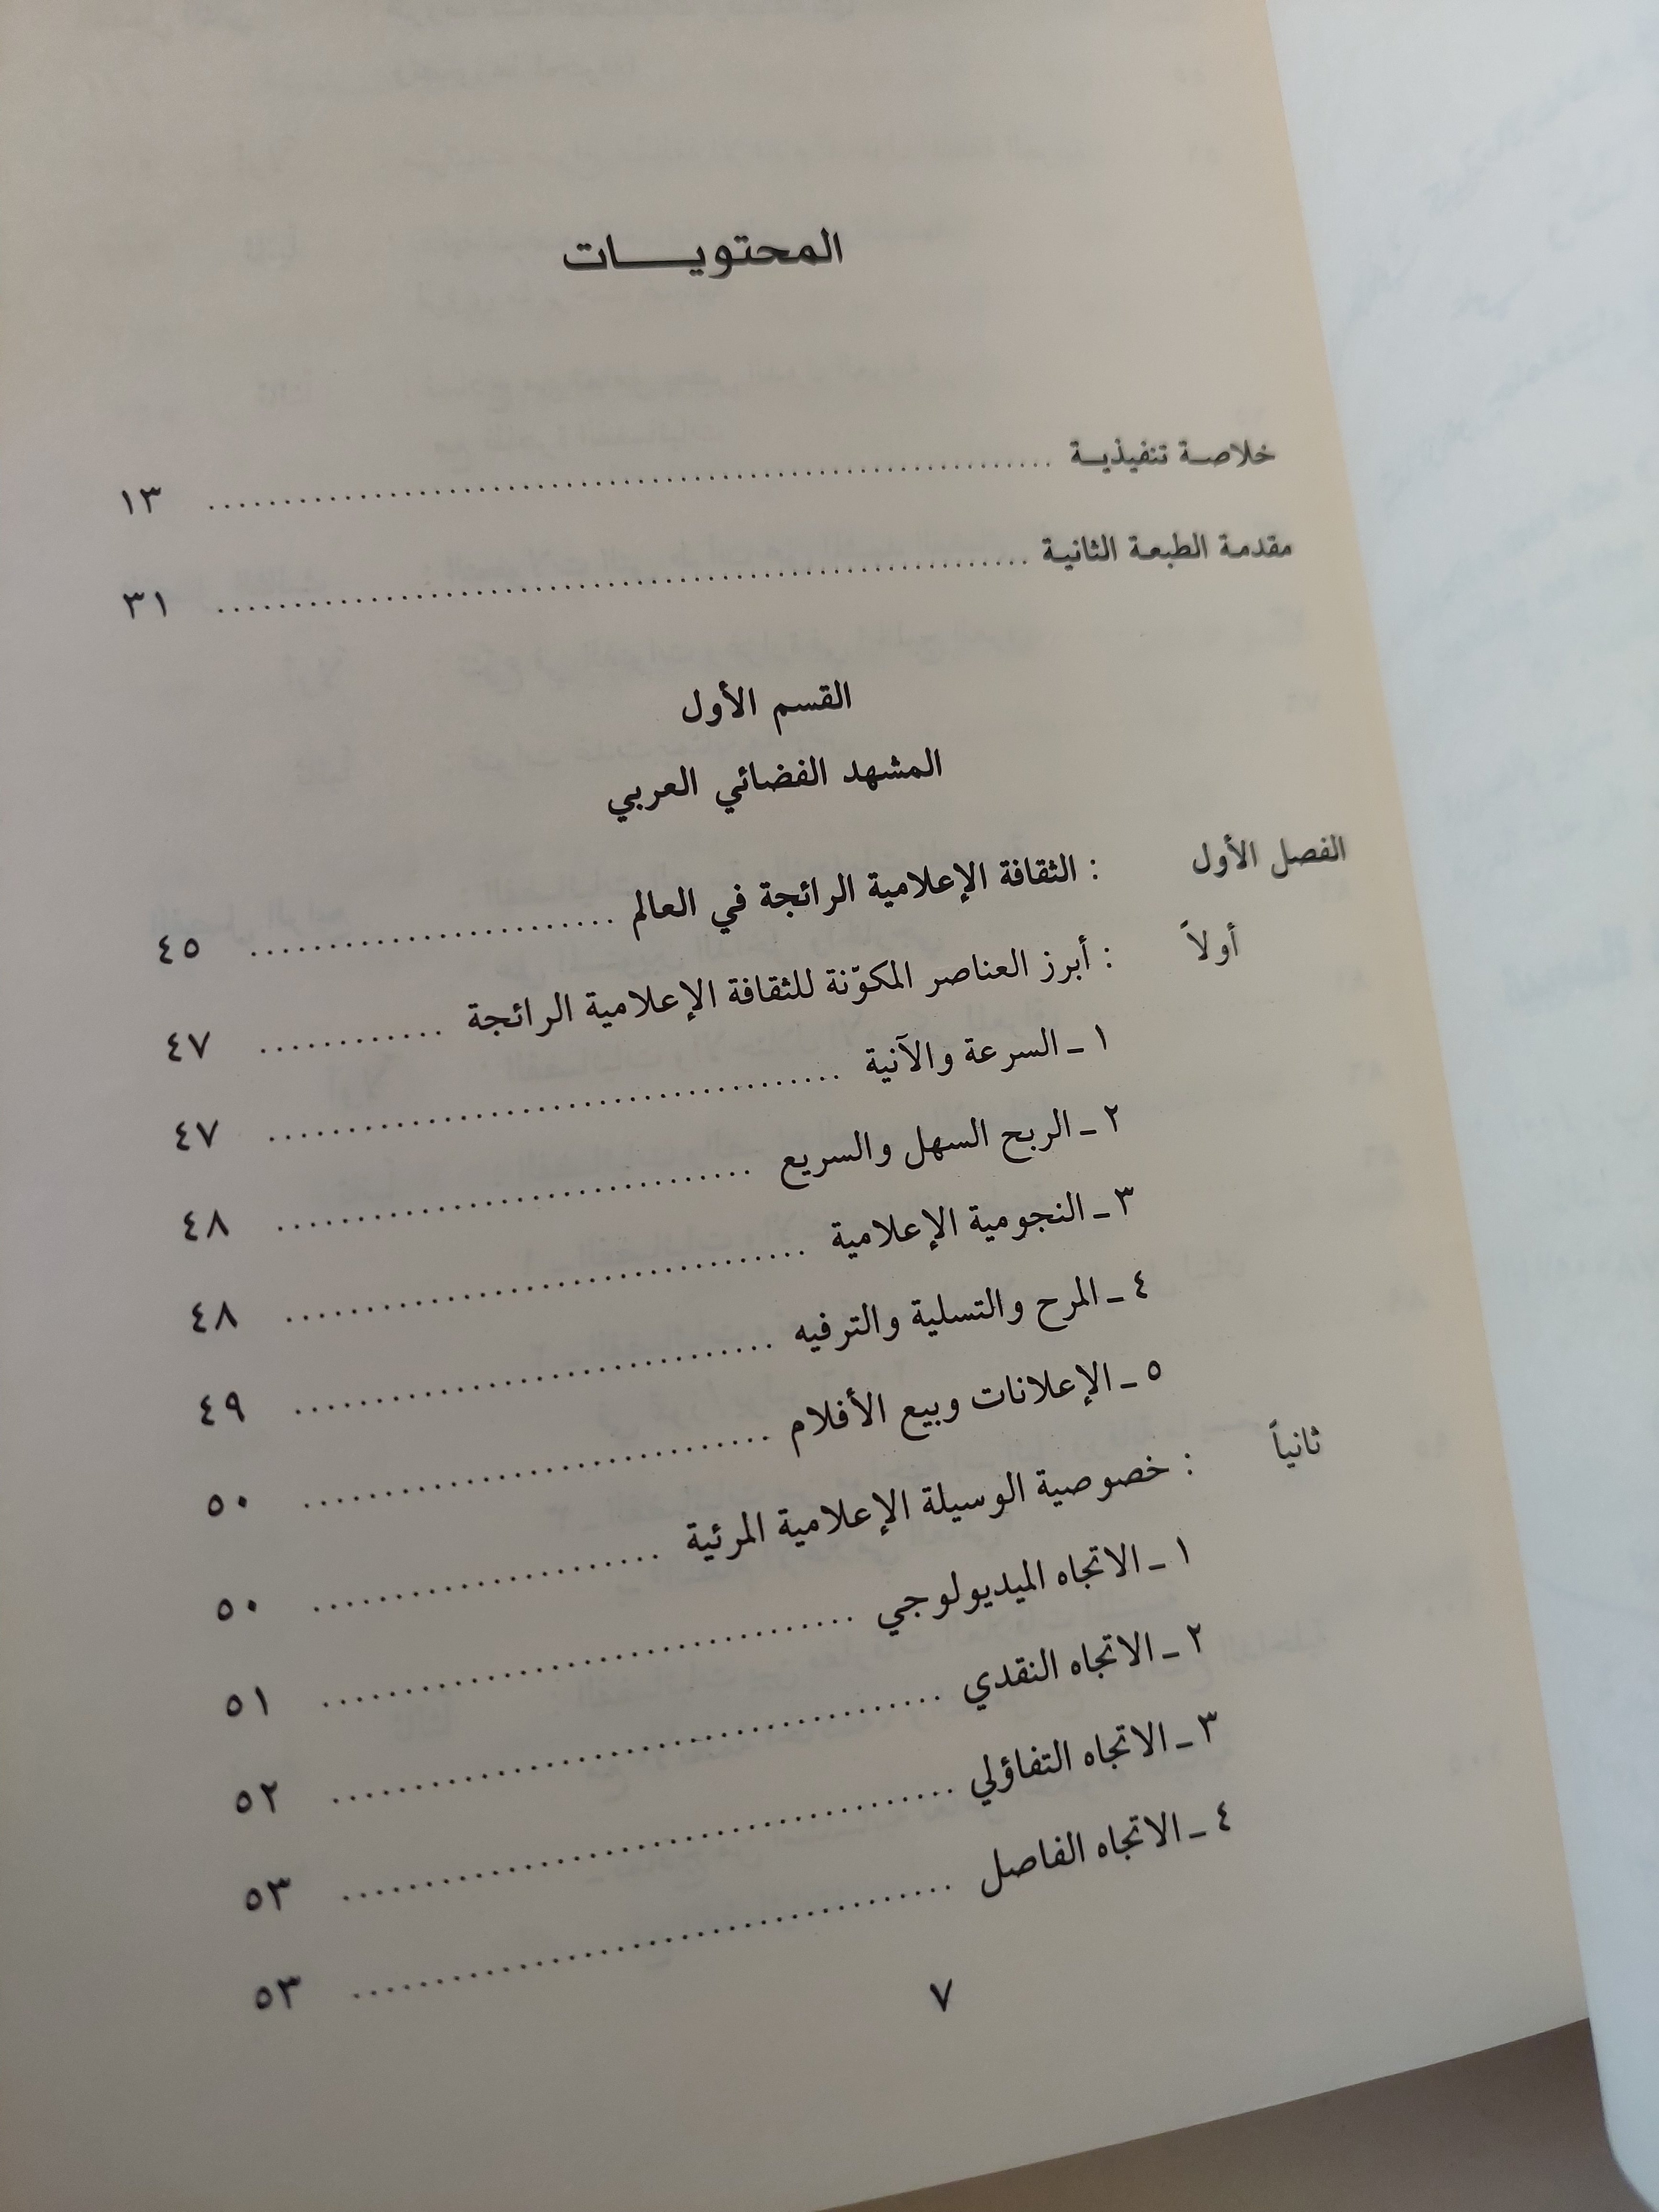 المحتويـــات
خلاصة تنفيذية ........ ١٣
مقدمة الطبعة الثانية ........ ٣١
القسم الأول
المشهد الفضائي العربي
الفصل الأول : الثقافة الإعلامية الرائجة في العالم ........ ٤٥
أولاً : أبرز العناصر المكوّنة للثقافة الإعلامية الرائجة ........ ٤٧
١ ـ السرعة والآنية ........ ٤٧
٢ ـ الربح السهل والسريع ........ ٤٨
٣ ـ النجومية الإعلامية ........ ٤٨
٤ ـ المرح والتسلية والترفيه ........ ٤٩
٥ ـ الإعلانات وبيع الأفلام ........ ٥٠
ثانياً : خصوصية الوسيلة الإعلامية المرئية ........ ٥٠
١ ـ الاتجاه الميديولوجي ........ ٥١
٢ ـ الاتجاه النقدي ........ ٥٢
٣ ـ الاتجاه التفاؤلي ........ ٥٣
٤ ـ الاتجاه الفاصل ........ ٥٣
٧